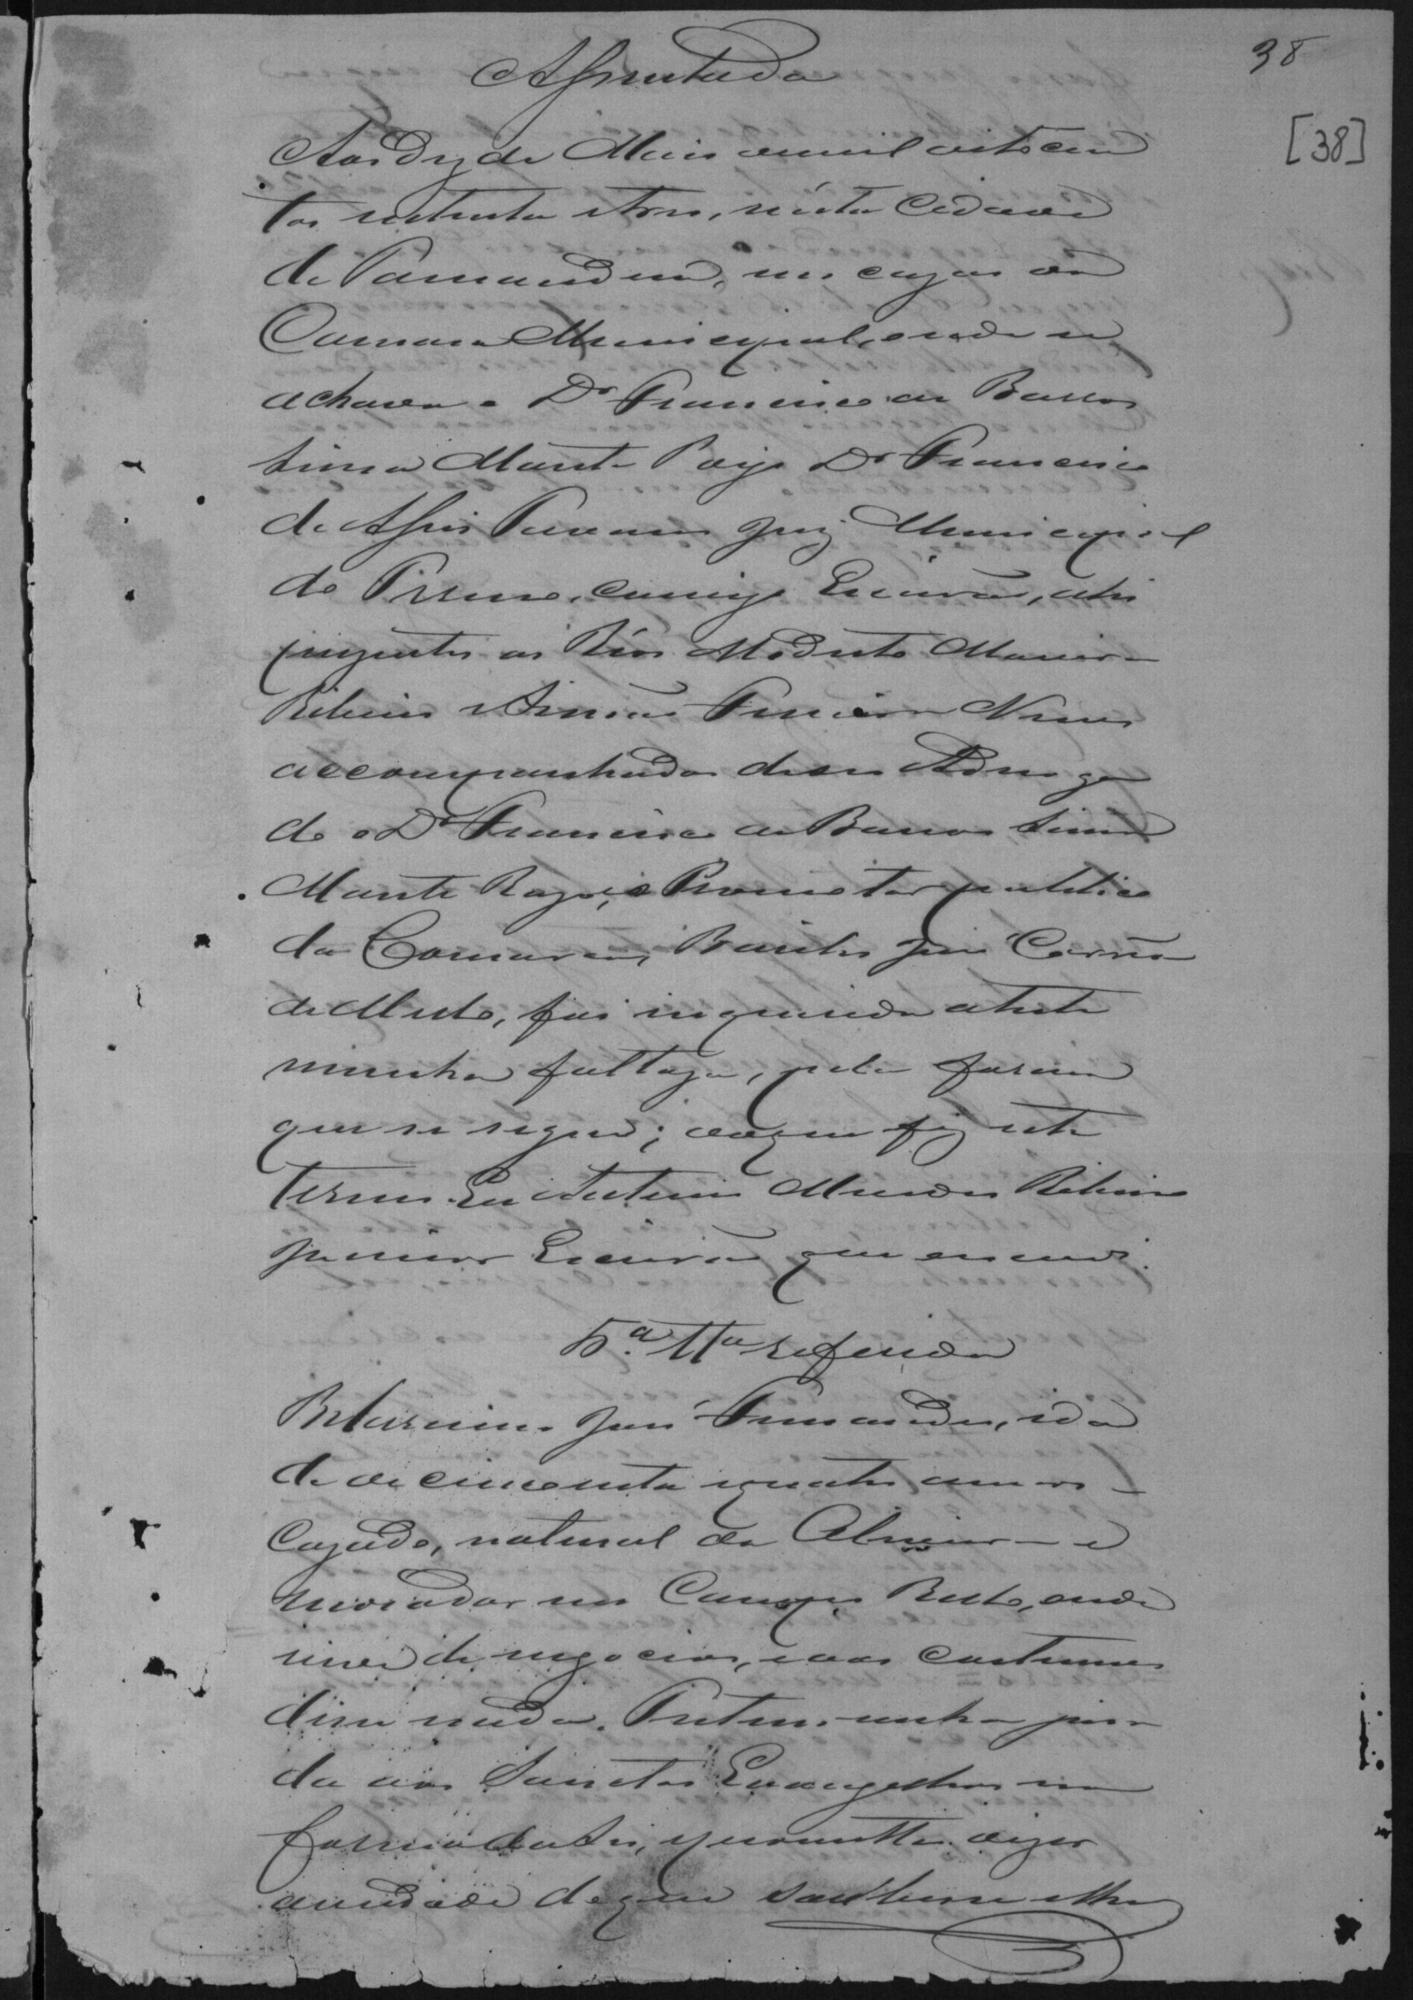 38
[38]
Assentada
Aos dez de Maio de mil oitocen
tos setenta e tres, nésta Cidade
de Tamandua, nas cazas da
Camara Municipal, onde se
achava o Dr Francisco de Barros
Lima Monte Razo Dr Francisco
de Assis Tavares Juiz Municipal
do Termo, comigo Escrivão, ahi
prezentes os Réos Modesto
Ribeiro e Simão Ferreira Nunes
accompanhados de seu Advoga
do o Dr Francisco de Barros Lima
Monte Razo, e o Promotor publico
da Comarca, José Corrêa
de Mello, foi inquirida a teste
munha faltoza, pela forma
que se segue; do que fiz este
termo. Eu Antonio Mendes Ribeiro
Junior Escrivão que escrevi.
5.ª Tta referida
Belarmino José Fernandes, ida
de de cincoenta e quatro annos
Cazado, natural da e
morador no Campo Bello, onde
vive de negocios, e aos costumes
disse nada. Testemunha jura
da aos Santos Evangelhos em
forma da Lei, prometteo dizer
a verdade do que soubesse e lhe